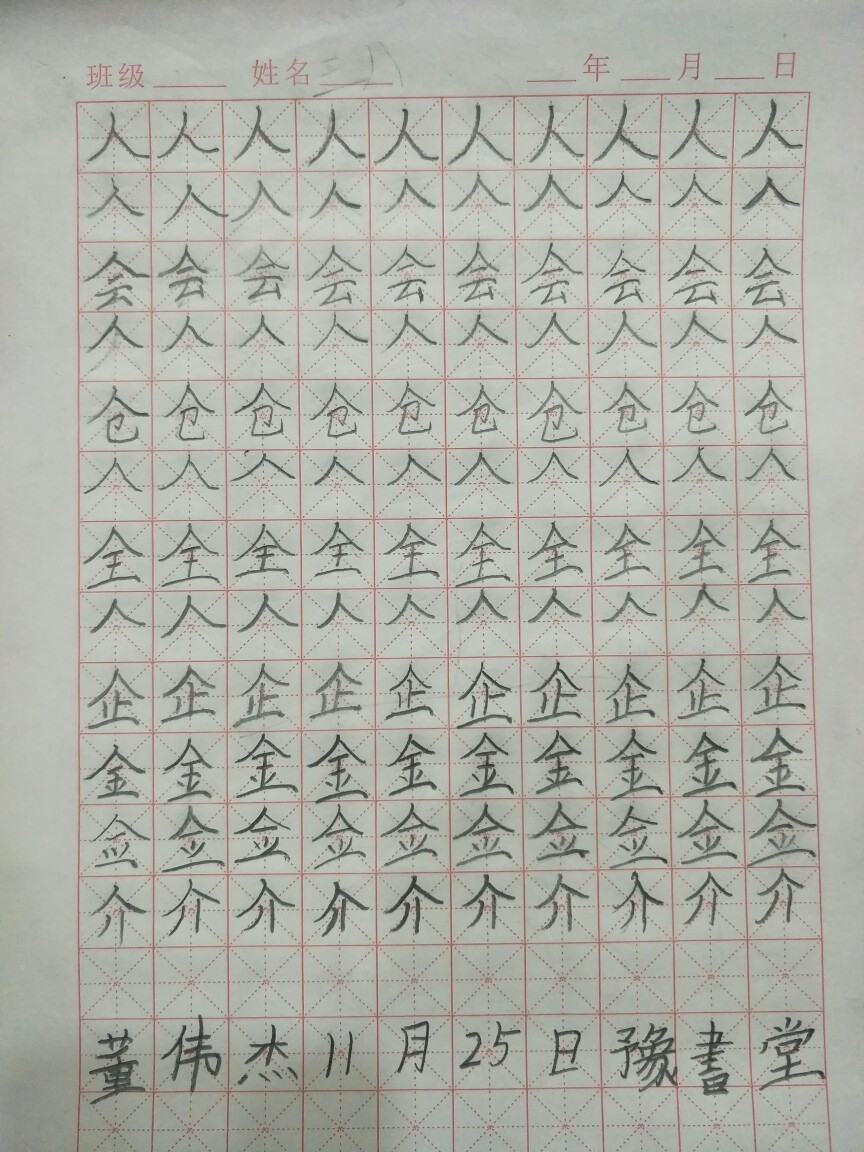 班级 姓名 三 年 月 日
人人人人人人人人人人
人人人人人人人人人人
会会会会会会会会会会
人人人人人人人人人人
仓仓仓仓仓仓仓仓仓仓
人人人人人人人人人人
全全全全全全全全全全
人人人人人人人人人人
企企企企企企企企企企
金金金金金金金金金金
佥佥佥佥佥佥佥佥佥佥
介介介介介介介介介介
董伟杰11月25日豫書堂